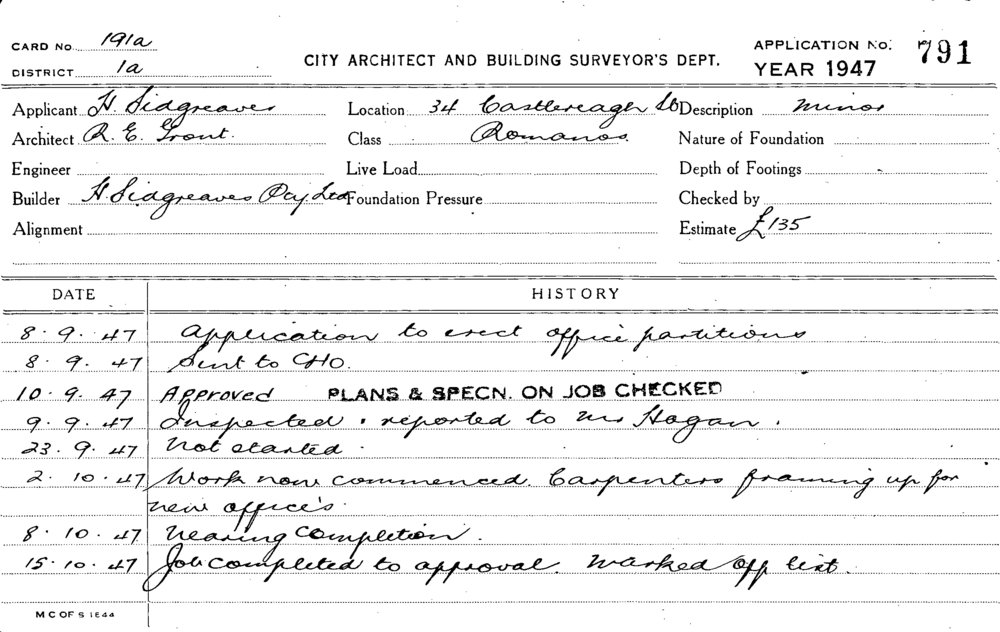 CARD No. 191a
DISTRICT 1a
CITY ARCHITECT AND BUILDING SURVEYOR'S DEPT.
APPLICATION No. 791
YEAR 1947
Applicant H. Sidgreaves Location 34 Castlereagh St Description Minor
Architect R. E. Grout. Class Romanos. Nature of Foundation
Engineer Live Load Depth of Footings
Builder H. Sidgreaves Pty. Ltd Foundation Pressure Checked by
Alignment Estimate £135
DATE HISTORY
8. 9. 47 Application to erect office partitions
8. 9. 47 Sent to CHO.
10. 9. 47 Approved PLANS & SPECN. ON JOB CHECKED
9. 9. 47 Inspected & reported to Mr Hogan.
23. 9. 47 Not started.
2. 10. 47 Work now commenced. Carpenters framing up for
new office's.
8. 10. 47 Nearing completion.
15. 10. 47 Job completed to approval. Marked off list.
M C OF S 1844